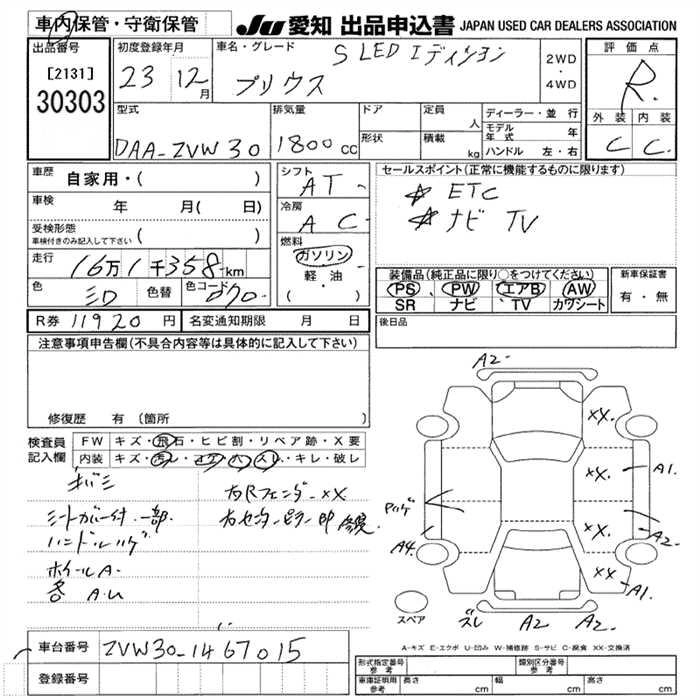 車内保管・守衛保管
JU 愛知 出品申込書 JAPAN USED CAR DEALERS ASSOCIATION
出品番号 [2131] 30303
初度登録年月 23 12月
車名・グレード S LED エディション プリウス
2WD ・ 4WD
評価点 R
型式 DAA-ZVW30
排気量 1800cc
ドア 形状
定員 人
積載 kg
ディーラー・並行
モデル年式 年
ハンドル 左・右
外装 内装
C C
車歴 自家用・( )
車検 年 月( 日)
受検形態 車検付きのみ記入して下さい ( )
走行 16万1千358km
色 シロ 色替 色コード 070
R券 11920円 名変通知期限 月 日
シフト AT
冷房 AC
燃料 ガソリン 軽・油 ( )
セールスポイント(正常に機能するものに限ります)
☆ ETC
☆ ナビ TV
装備品(純正品に限り○をつけてください)
PS PW エアB AW
SR ナビ TV カワシート
新車保証書 有・無
後日品
注意事項申告欄(不具合内容等は具体的に記入して下さい)
修復歴 有 (箇所
検査員記入欄
FW キズ・飛石・ヒビ割・リペア跡・X要
内装 キズ・汚レ・コゲ・穴・スレ・キレ・破レ
キバミ
シートカバー付 一部
ハンドルハゲ
ホイールA
各 A.U
右Rフェンダー XX
右センターピラー 修復
A2
XX
XX A1
XX A2
XX A1
ハゲ
A4
スペア
ズレ A2 A2
A-キズ E-エクボ U-凹み W-補修跡 S-サビ C-腐食 XX-交換済
車台番号 ZVW30-1467015
登録番号
形式指定番号 参考 類別区分番号 参考
車庫証明用 参考 長さ cm 幅 cm 高さ cm